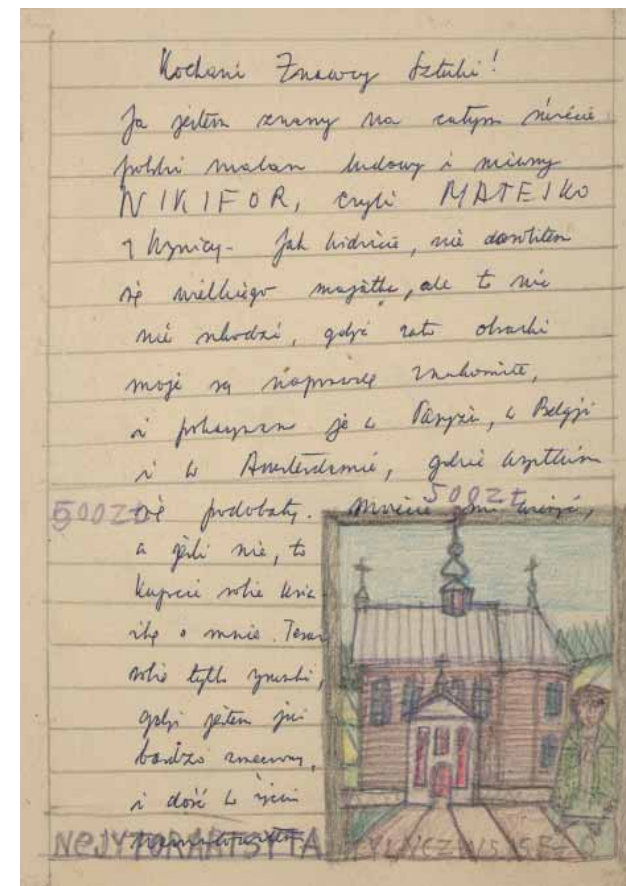 Kochani Znawcy Sztuki!
Ja jestem znany na całym świecie
polski malarz ludowy i niemy
NIKIFOR, czyli MATEJKO
z Krynicy. Jak widzicie, nie dorobiłem
się wielkiego majątku, ale to nic
nie szkodzi, gdyż zato obrazki
moje są naprawdę znakomite,
i pokazywano je w Paryżu, w Belgji
i w Amsterdamie, gdzie wszystkim
się podobały. Możecie mi wierzyć,
500ZŁ
500ZŁ
a jeśli nie, to
kupcie sobie ksią-
żkę o mnie. Teraz
robię tylko
gdyż jestem już
bardzo zmęczony,
i dość w życiu
NEJYTORARTSYTA